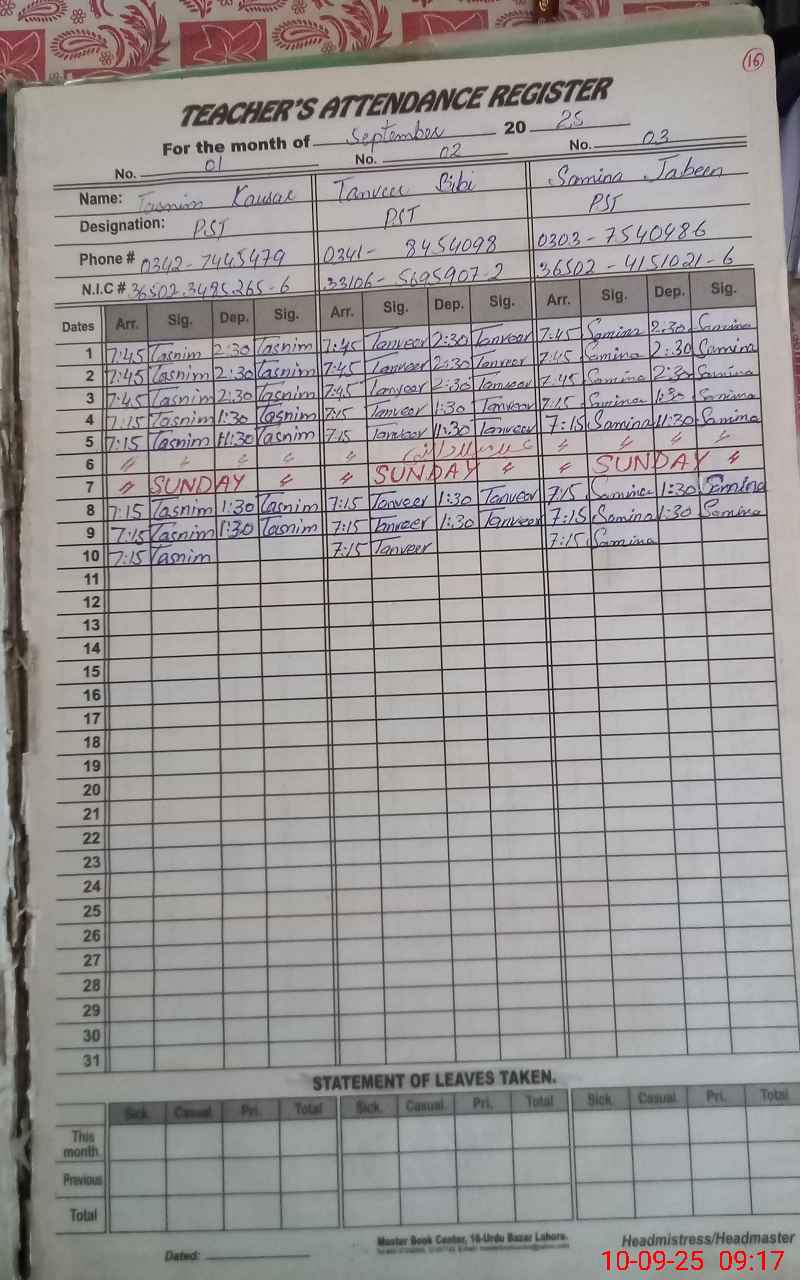 16
TEACHER'S ATTENDANCE REGISTER
For the month of September 20 25
No. 01 No. 02 No. 03
Name: Tasnim Kausar Tanveer Bibi Samina Jabeen
Designation: PST PST PST
Phone # 0342-7445479 0341- 8454098 0303-7540486
N.I.C # 36502.3495265-6 33106-5695907-2 36502-4151021-6
Dates Arr. Sig. Dep. Sig. Arr. Sig. Dep. Sig. Arr. Sig. Dep. Sig.
1 7:45 Tasnim 2:30 Tasnim 7:45 Tanveer 2:30 Tanveer 7:45 Samina 2:30 Samina
2 7:45 Tasnim 2:30 Tasnim 7:45 Tanveer 2:30 Tanveer 7:45 Samina 2:30 Samina
3 7:45 Tasnim 2:30 Tasnim 7:45 Tanveer 2:30 Tanveer 7:45 Samina 2:30 Samina
4 7:15 Tasnim 1:30 Tasnim 7:15 Tanveer 1:30 Tanveer 7:15 Samina 1:30 Samina
5 7:15 Tasnim 11:30 Tasnim 7:15 Tanveer 11:30 Tanveer 7:15 Samina 11:30 Samina
6 〃 〃 〃 〃 〃 〃 〃 〃 〃
7 〃 SUNDAY 〃 〃 SUNDAY 〃 〃 SUNDAY 〃
8 7:15 Tasnim 1:30 Tasnim 7:15 Tanveer 1:30 Tanveer 7:15 Samina 1:30 Samina
9 7:15 Tasnim 1:30 Tasnim 7:15 Tanveer 1:30 Tanveer 7:15 Samina 1:30 Samina
10 7:15 Tasnim 7:15 Tanveer 7:15 Samina
11
12
13
14
15
16
17
18
19
20
21
22
23
24
25
26
27
28
29
30
31
STATEMENT OF LEAVES TAKEN.
Sick. Casual. Pri. Total Sick. Casual. Pri. Total Sick. Casual. Pri. Total
This month
Previous
Total
Dated: Master Book Center, 16-Urdu Bazar Lahore. Headmistress/Headmaster
10-09-25 09:17